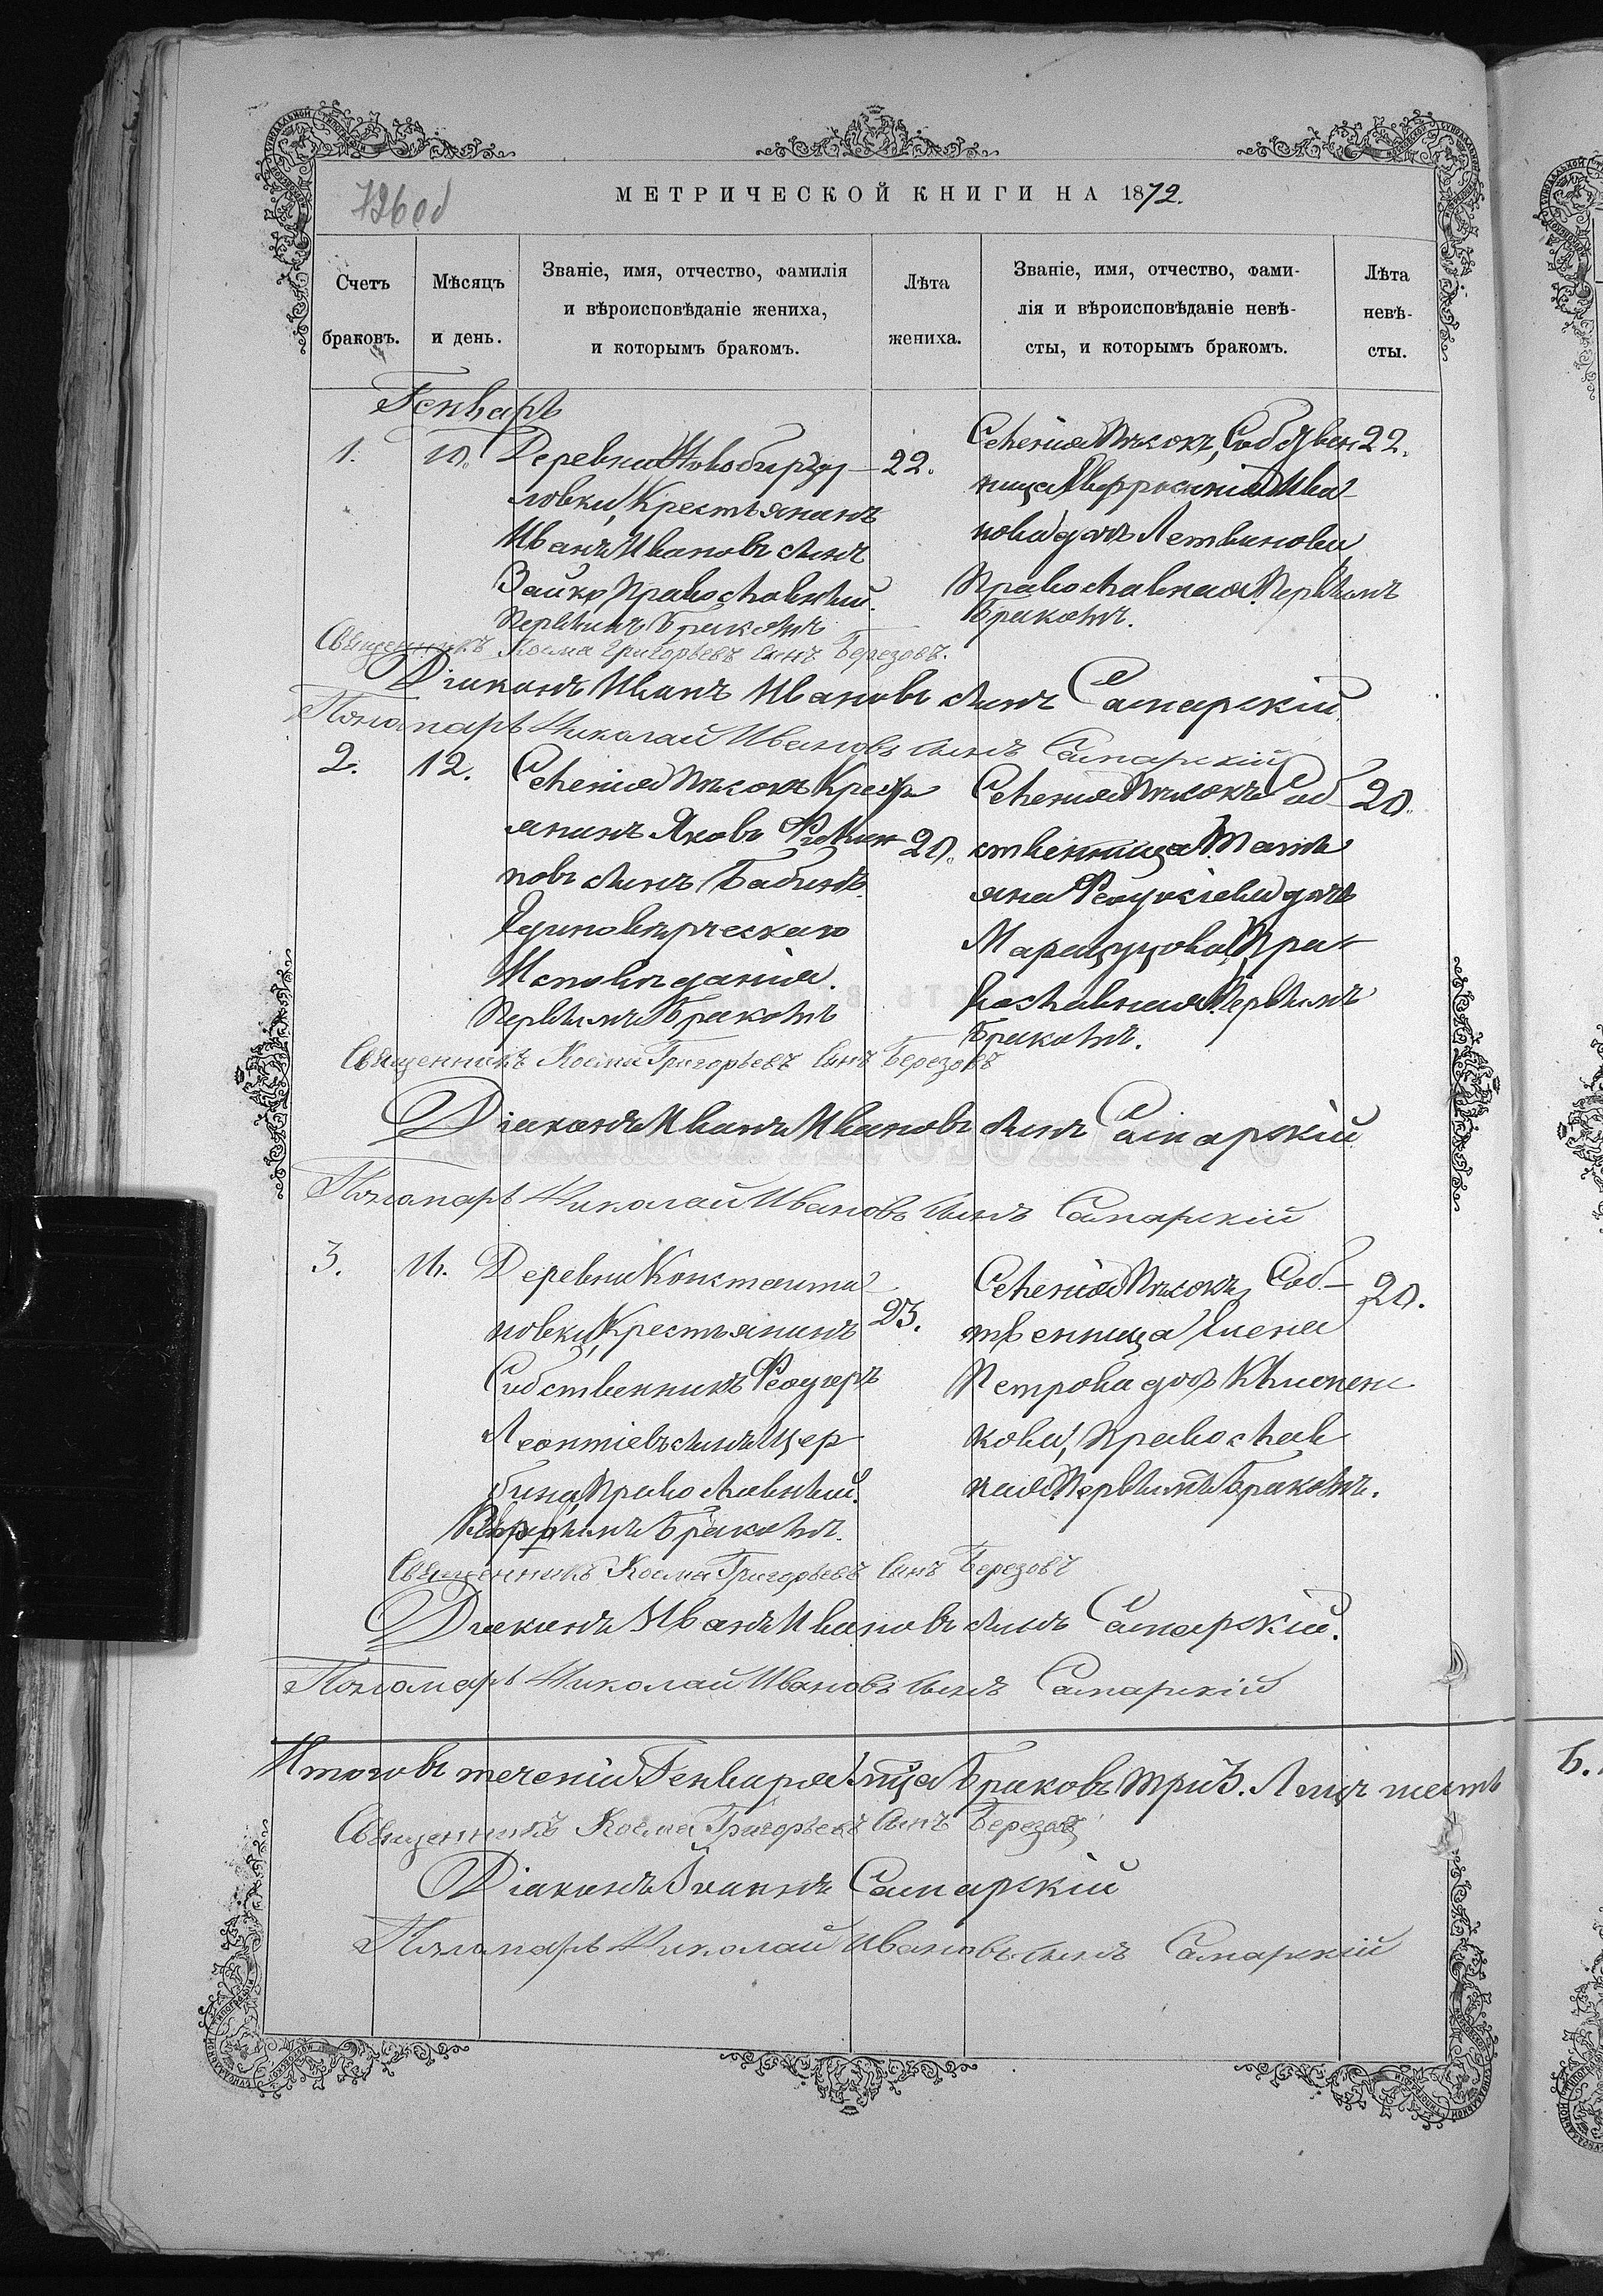 726 об
МЕТРИЧЕСКОЙ КНИГИ НА 1872.
Счетъ браковъ.
Мѣсяцъ и день.
Званіе, имя, отчество, фамилія
и вѣроисповѣданіе жениха,
и которымъ бракомъ.
Лѣта жениха.
Званіе, имя, отчество, фами-
лія и вѣроисповѣданіе невѣ-
сты, и которымъ бракомъ.
Лѣта невѣ-
сты.
Генварь
1.
10.
Деревни
ловки, Крестьянинъ
Иванъ Ивановъ сынъ
Зайко Православный.
Первымъ Бракомъ
22.
Селенія Пѣсокъ, Собствен
ница Евфросинія Ива
нова дочь Летвинова
Православная, Первымъ
Бракомъ.
22.
Священникъ Косма Григорьевъ сынъ Березовъ.
Діаконъ Иванъ Ивановъ сынъ Самарскій
Пономарь Николай Ивановъ сынъ Самарскій
2.
12.
Селенія Пѣсокъ Крест
янинъ Яковъ
новъ сынъ Бабинъ.
Единовѣрческаго
Исповѣданія.
Первымъ Бракомъ
20.
Селенія Пѣсокъ Соб
ственница Тать
яна дочь
Православная Первымъ
Бракомъ.
20.
Священникъ Косма Григорьевъ сынъ Березовъ
Діаконъ Иванъ Ивановъ сынъ Самарскій
Пономарь Николай Ивановъ сынъ Самарскій
3.
16.
Деревни Константи
новки, Крестьянинъ
Собственникъ Феодоръ
Леонтіевъ сынъ Щер
бина, Православный.
Первымъ Бракомъ.
23.
Селенія Пѣсокъ, Соб-
твенница Елена
Петрова дочь
кова, Православ
ная. Первымъ Бракомъ.
20.
Священникъ Косма Григорьевъ сынъ Березовъ
Діаконъ Иванъ Ивановъ сынъ Самарскій.
Пономарь Николай Ивановъ сынъ Самарскій
Итого въ теченіи Генваря мца Браковъ три 3. А лицъ шесть
Священникъ Косма Григорьевъ сынъ Березовъ
Діаконъ Іоаннъ Самарскій
Пономарь Николай Ивановъ сынъ Самарскій